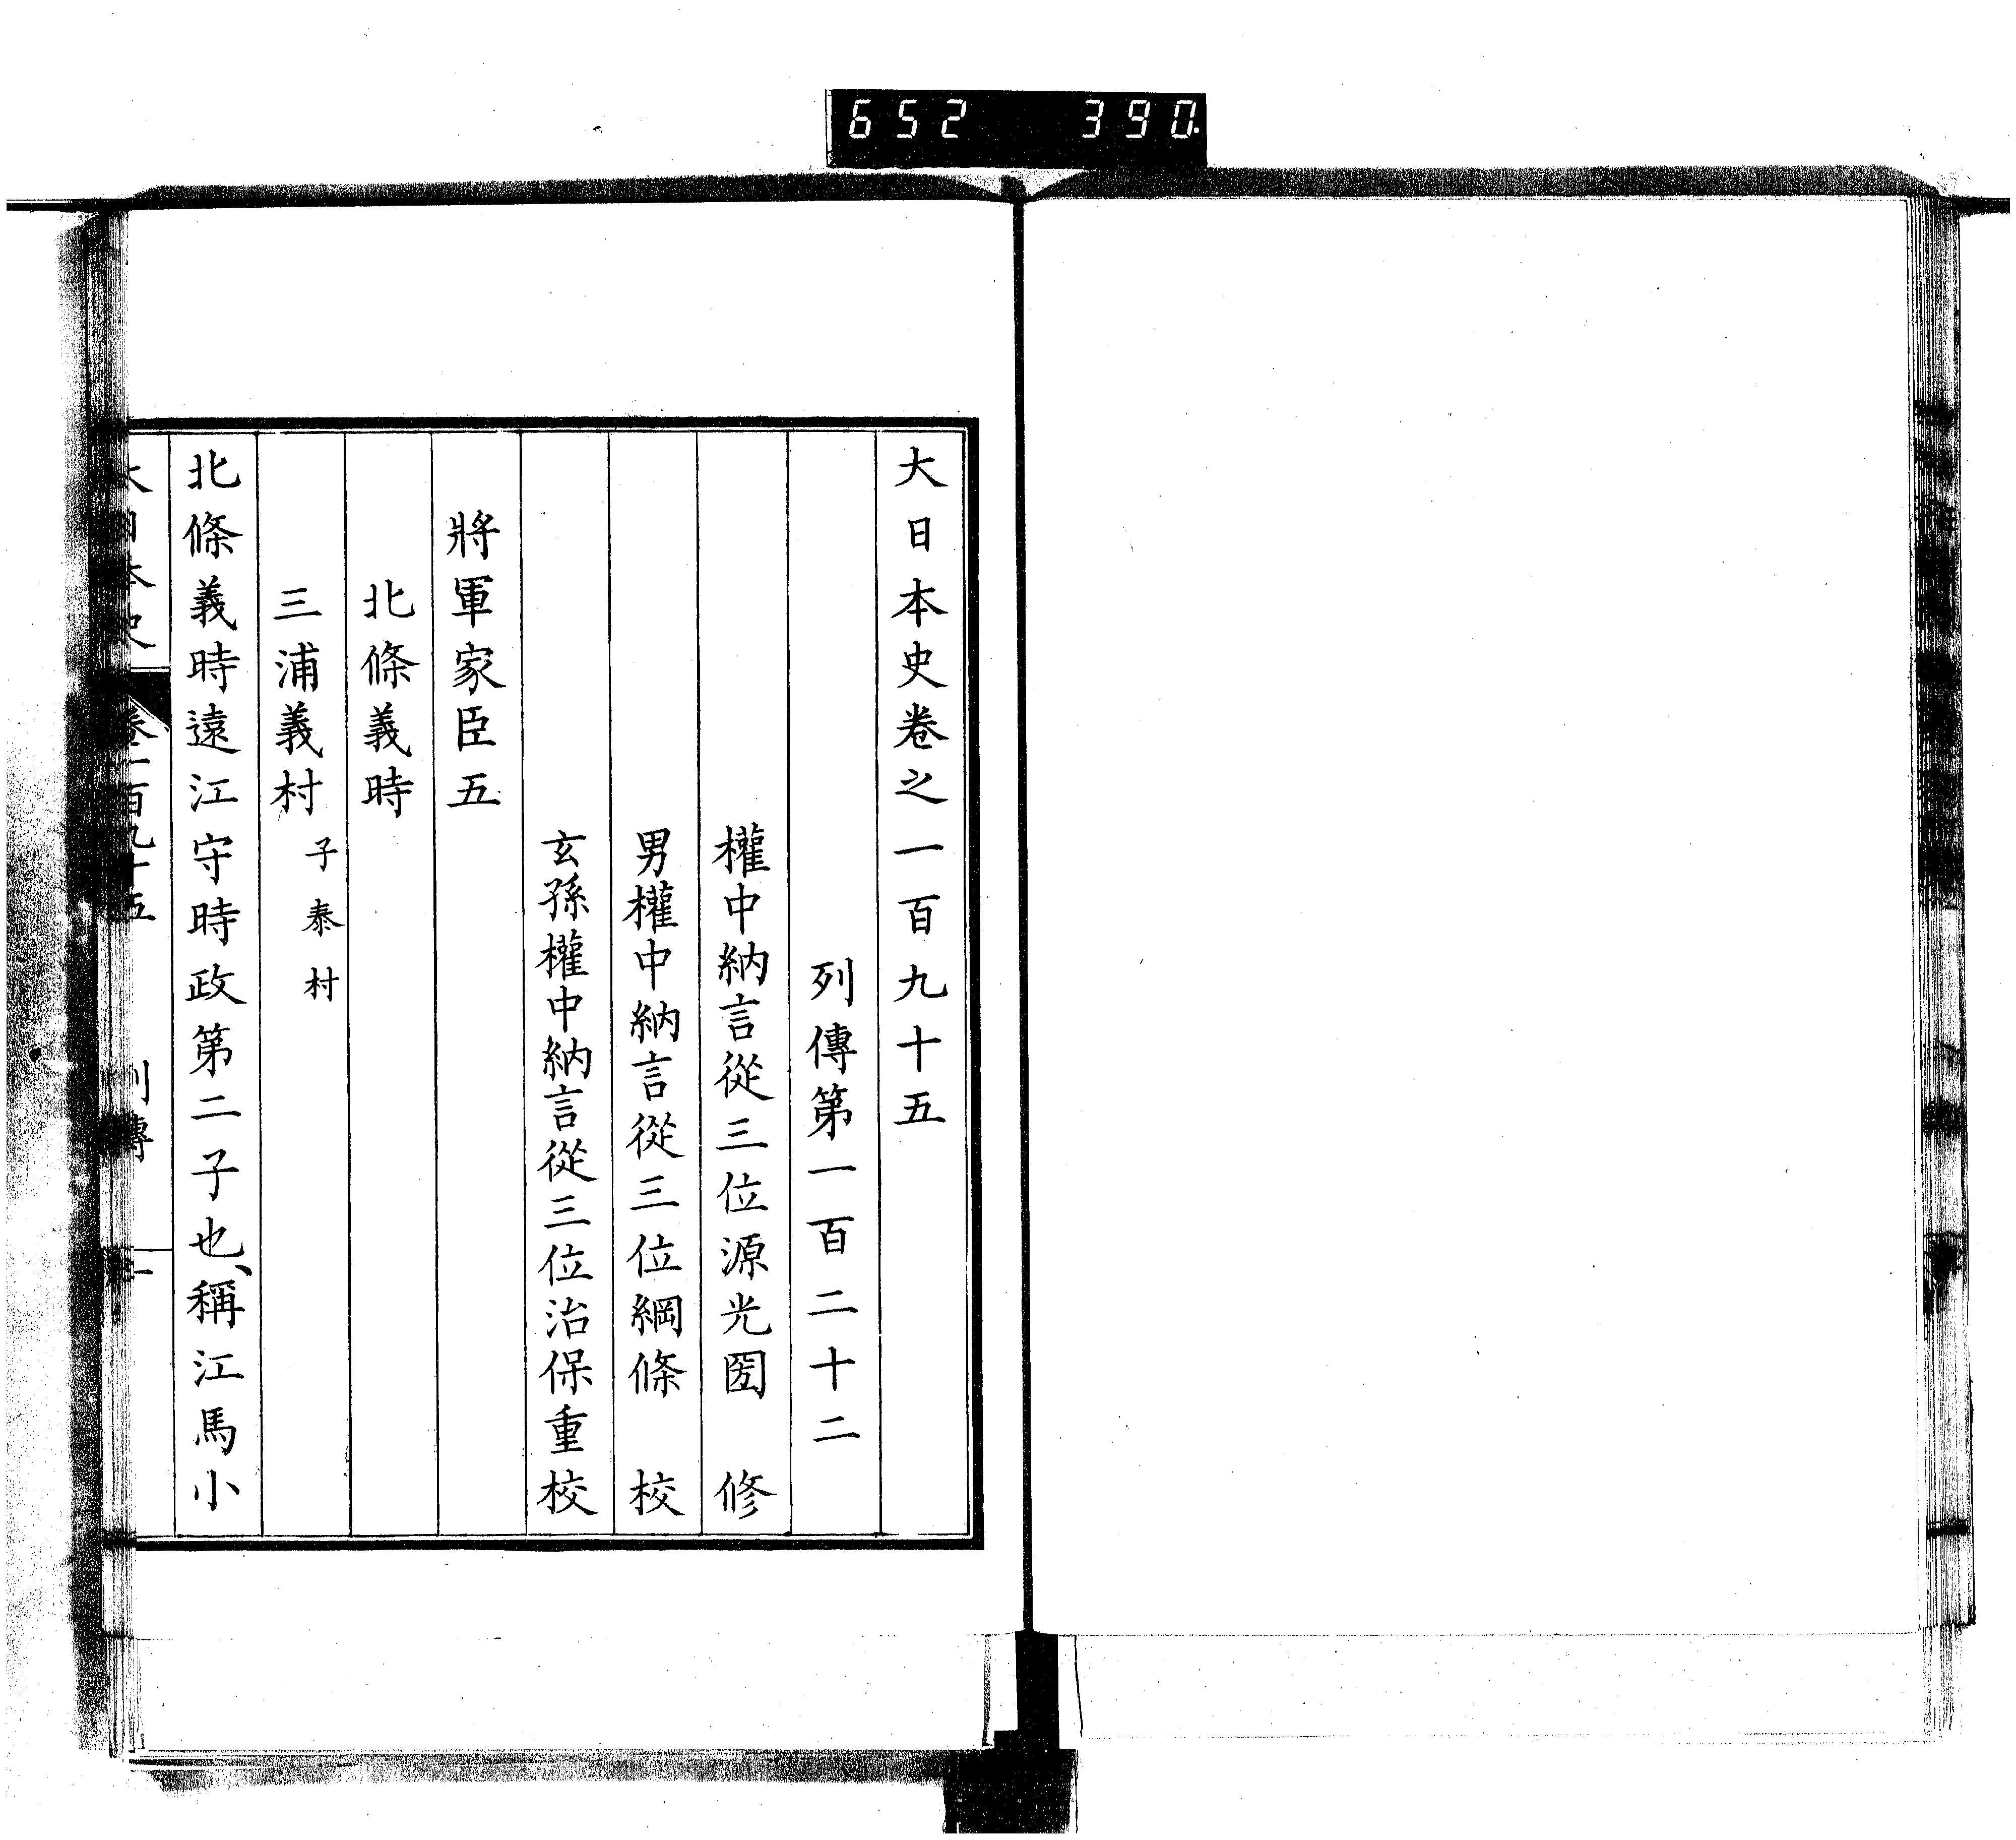 652 390
大日本史卷之一百九十五
列傳第一百二十二
權中納言從三位源光圀 修
男權中納言從三位綱條 校
玄孫權中納言從三位治保重校
將軍家臣五
北條義時
三浦義村 子泰村
北條義時遠江守時政第二子也、稱江馬小
大日本史 卷一百九十五 列傳 一